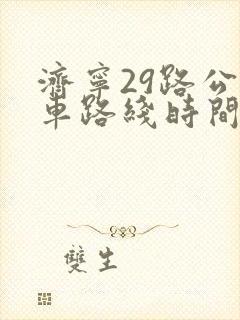 濟寧29路公
車路綫時間
雙生